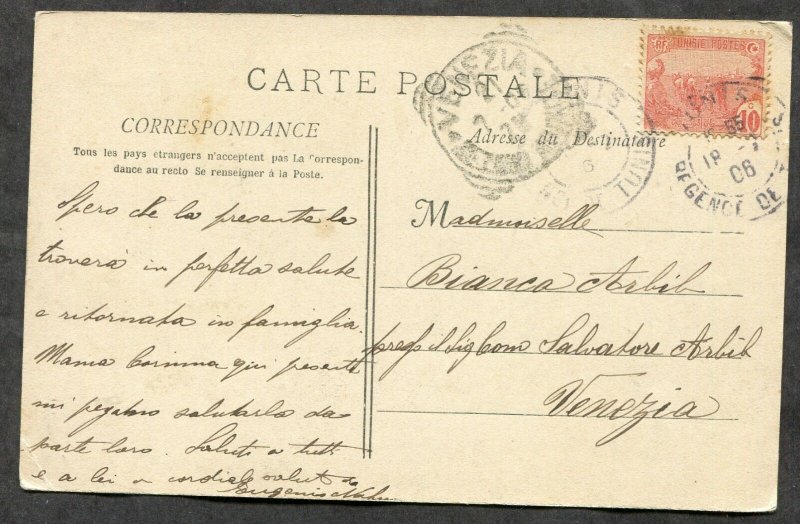 CARTE POSTALE
CORRESPONDANCE
Tous les pays etrangers n'acceptent pas La Correspon-
dance au recto Se renseigner à la Poste.
Spero che la presente la
troverà in perfetta salute
e ritornata in famiglia.
Mama Corinna qui presente
mi pregano salutarla da
parte loro. Saluti a tutti
e a lei un cordiale saluto da
Eugenio
VENEZIA
Adresse du Destinataire
Mademoiselle
Bianca Arbib
Sig Com Salvatore Arbib
Venezia
RF TUNISIE POSTES
10
TUNIS
TUNIS
18
06
REGENCE DE